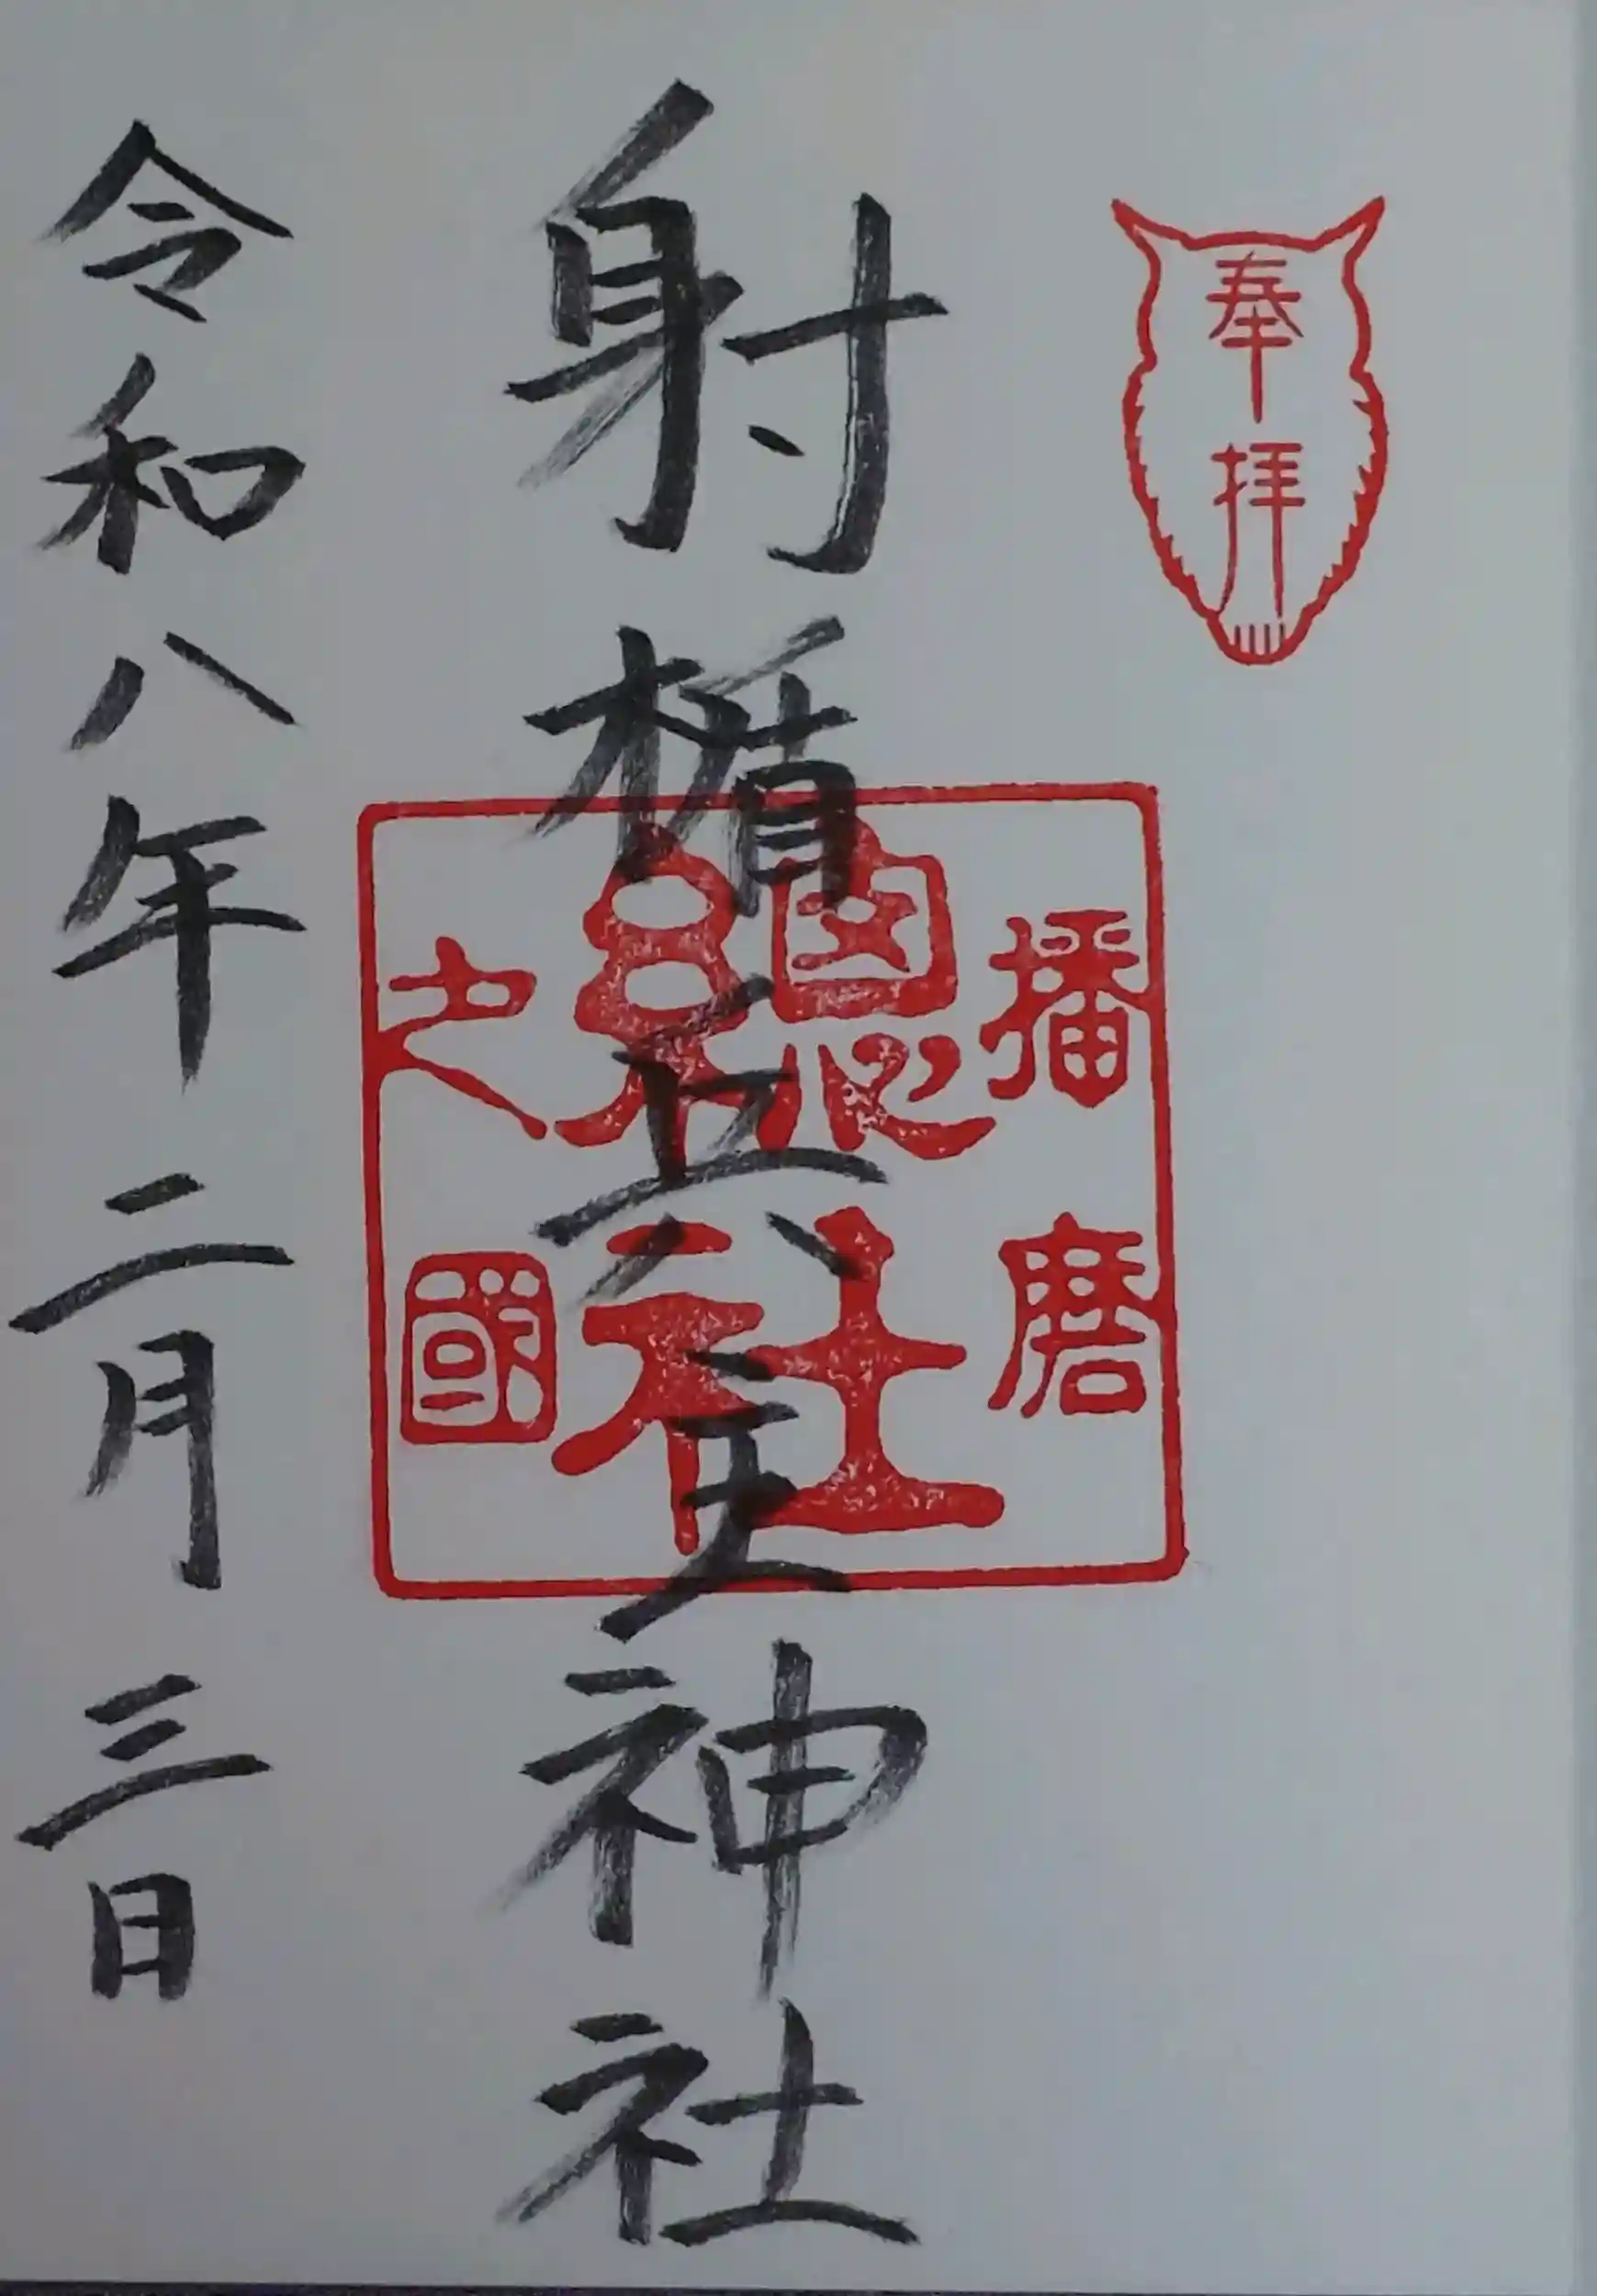 奉拝
播磨
總社
之國
射楯兵主神社
令和八年二月三日